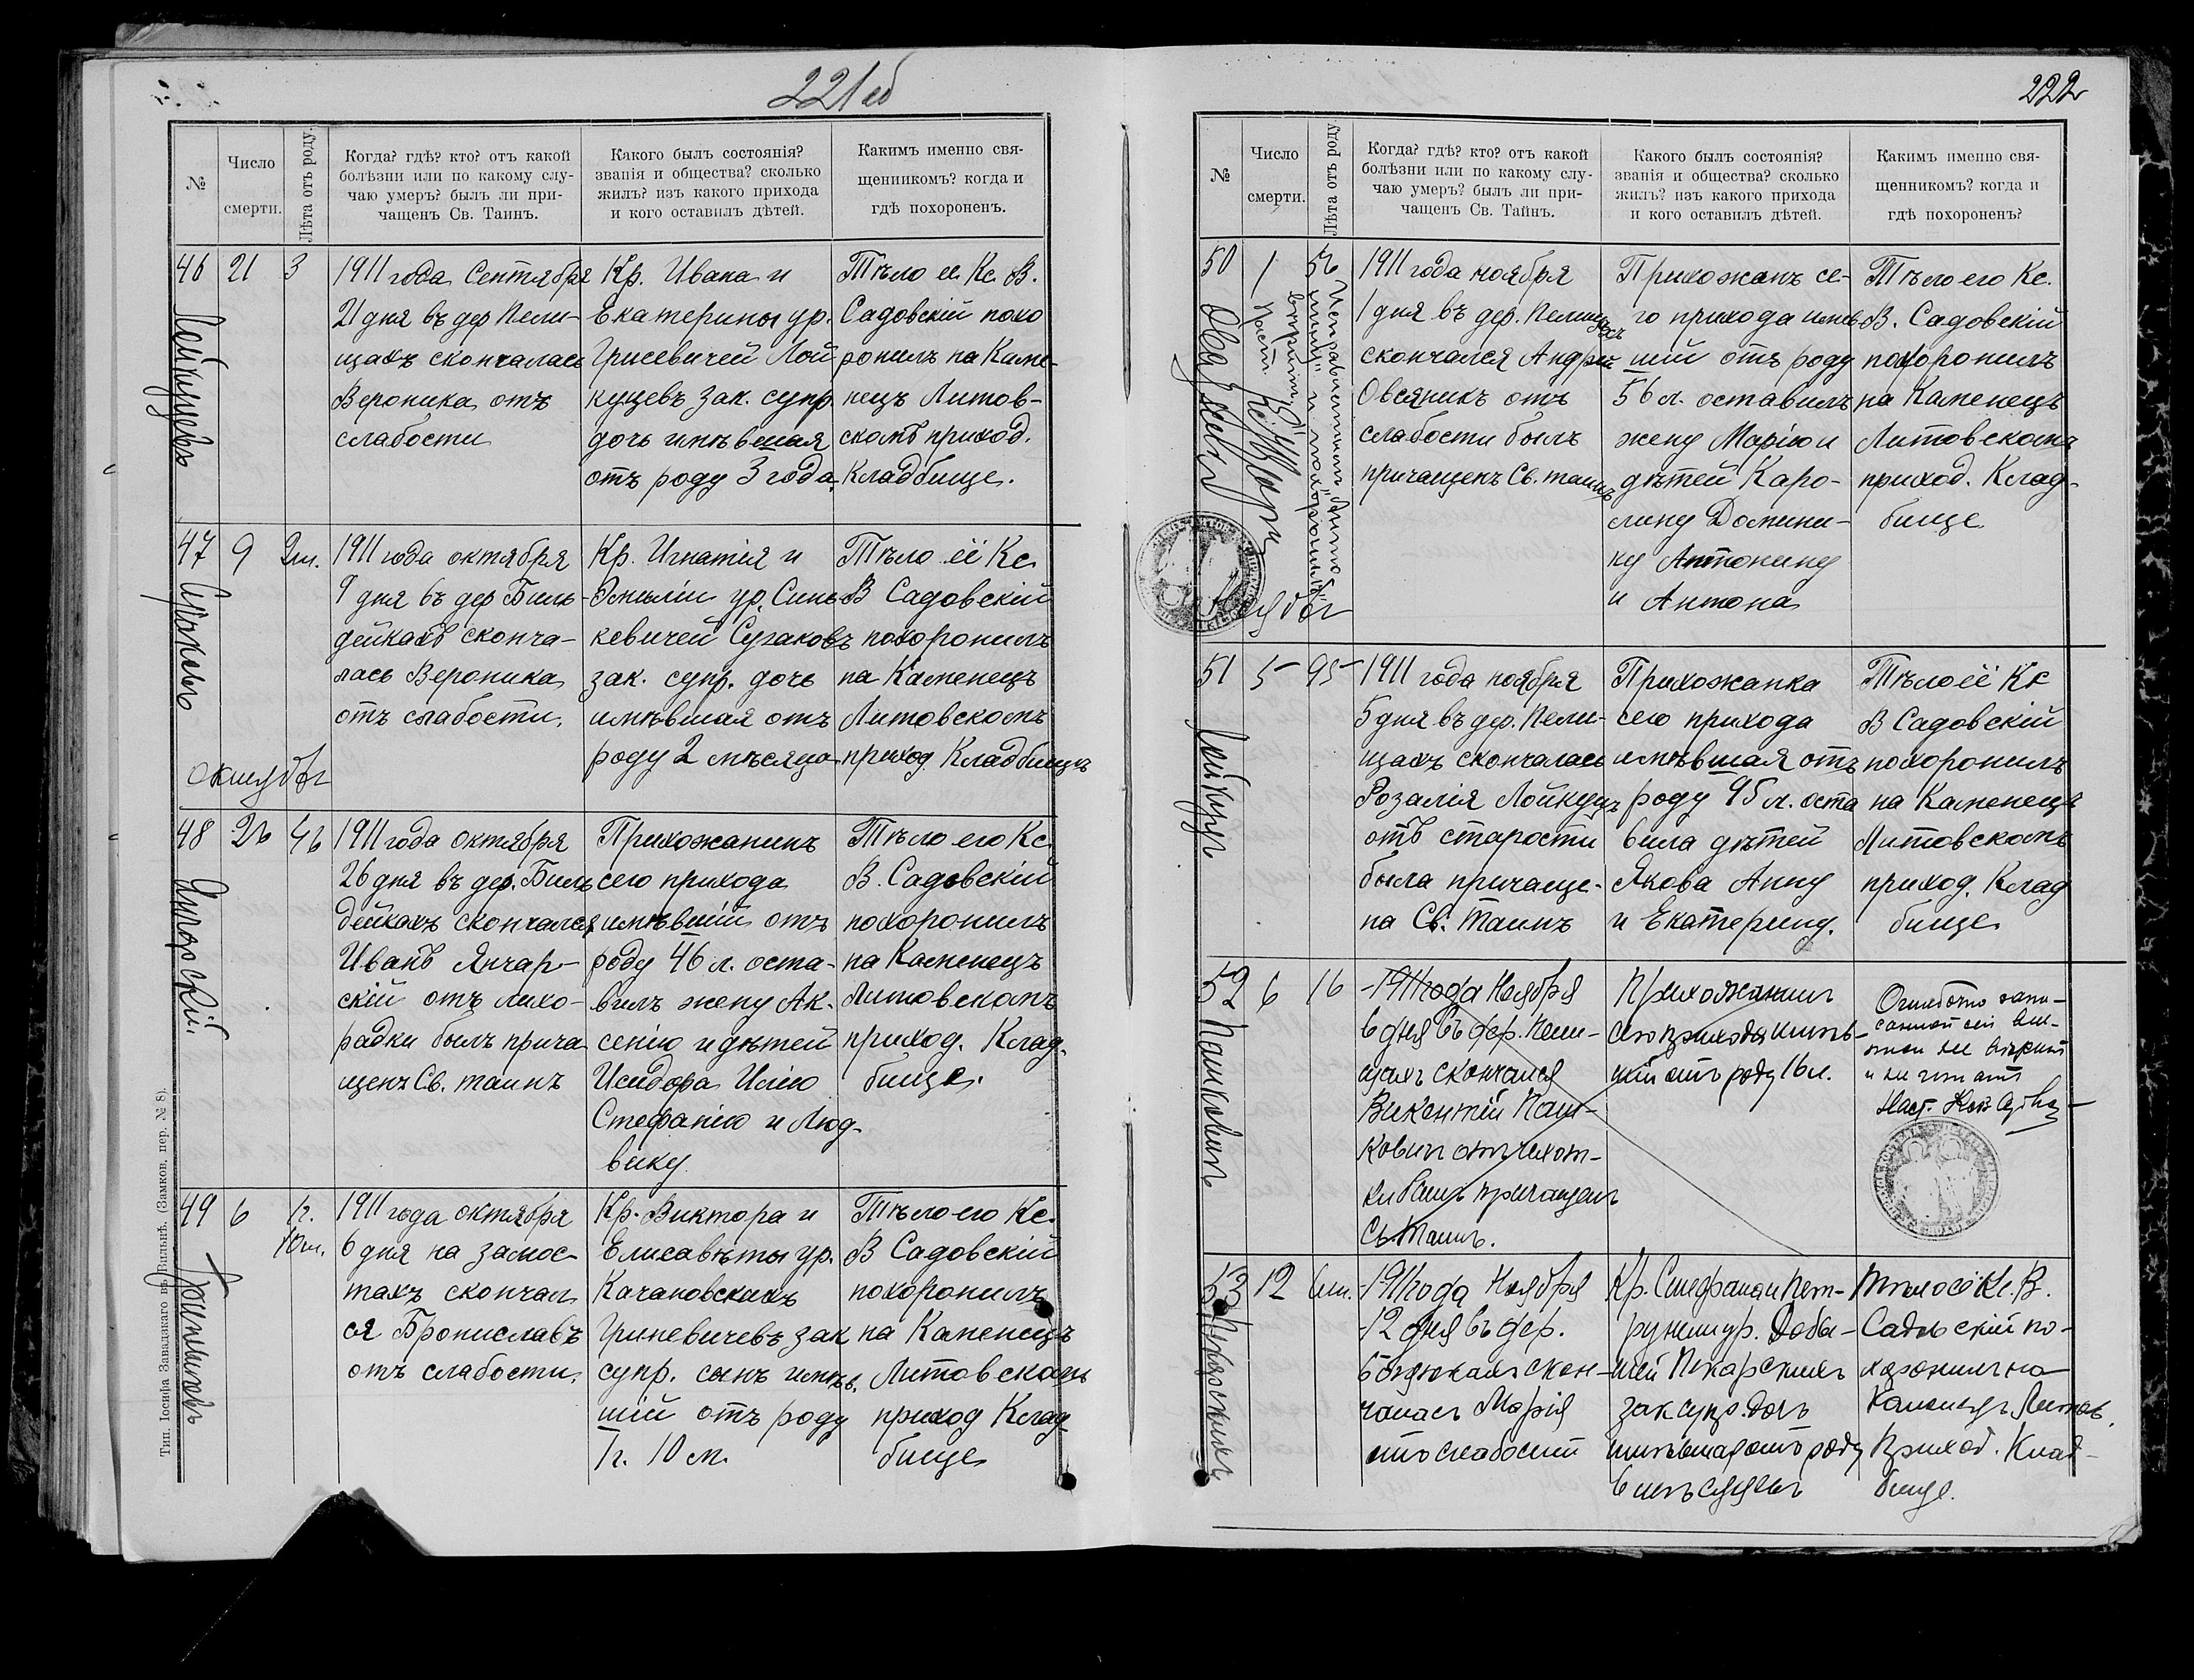 221об
№
Число
смерти.
Лѣта отъ роду.
Когда? гдѣ? кто? отъ какой
болѣзни или по какому слу-
чаю умеръ? былъ ли при-
чащенъ Св. Таинъ.
Какого былъ состоянія?
званія и общества? сколько
жилъ? изъ какого прихода
и кого оставилъ дѣтей.
Какимъ именно свя-
щенникомъ? когда и
гдѣ похороненъ.
46
21
3
Лойкуцевъ
1911 года Сентября
21 дня въ дер Пели-
щахъ скончалась
Вероника отъ
слабости
Кр. Ивана и
Екатерины ур.
Грисевичей Лой
куцевъ зак. супр.
дочь имѣвшая
отъ роду 3 года.
Тѣло ее Кс. В.
Садовскій похо
ронилъ на Каме-
нецъ Литов-
скомъ приход.
Кладбище.
47
9
2м.
1911 года октября
9 дня въ дер Биль-
дейкахъ сконча-
лась Вероника
отъ слабости.
Кр. Игнатія и
Эмиліи ур. Синь
кевичей Сугаковъ
зак. супр. дочь
имѣвшая отъ
роду 2 мѣсяца
Тѣло её Кс
В Садовскій
похоронилъ
на Каменецъ
Литовскомъ
приход. Кладбищѣ
октябрь
48
26
46
Янчарскій.
1911 года октября
26 дня въ дер. Биль
дейкахъ скончался
Иванъ Янчар-
скій отъ лихо-
радки былъ прича
щенъ Св. таинъ
Прихожанинъ
сего прихода
имѣвшій отъ
роду 46 л. оста-
вилъ жену Ак-
сенію и дѣтей
Исидора Илію
Стефанію и Люд-
вику
Тѣло его Кс.
В. Садовскій
похоронилъ
на Каменецъ
Литовскомъ
приход. Клад-
бище.
49
6
1г.
10м.
1911 года октября
6 дня на замос-
тахъ скончал
ся Брониславъ
отъ слабости.
Кр. Виктора и
Елисавѣты ур.
Качановскихъ
Гриневичевъ зак
супр. сынъ имѣв.
шій отъ роду
1 г. 10 м.
Тѣло его Кс.
В Садовскій
похоронилъ
на Каменецъ
Литовскомъ
приход Клад-
бище
Тип. Іосифа Завадзкаго въ Вильнѣ. (Замков. пер. № 8).
222
№
Число
смерти.
Лѣта отъ роду
Когда? гдѣ? кто? отъ какой
болѣзни или по какому слу-
чаю умеръ? былъ ли при-
чащенъ Св. Тайнъ.
Какого былъ состоянія?
званія и общества? сколько
жилъ? изъ какого прихода
и кого оставилъ дѣтей.
Какимъ именно свя-
щенникомъ? когда и
гдѣ похороненъ?
50
1
56
ноябрь
1911 года ноября
1 дня въ дер. Пелищахъ
скончался Андрей
Овсяникъ отъ
слабости былъ
причащенъ Св. таинъ
Прихожанъ се-
го прихода имѣв
шій отъ роду
56 л. оставилъ
жену Марію и
дѣтей Каро-
лину Домини-
ку Антонину
и Антона
Тѣло его Кс.
В. Садовскій
похоронилъ
на Каменецъ
Литовскомъ
приход. Клад-
бище
51
5
95
Лойкуцъ
1911 года ноября
5 дня въ дер. Пели-
щахъ скончалась
Розалія Лойкуцъ
отъ старости
была причаще-
на Св. Таинъ
Прихожанка
сего прихода
имѣвшая отъ
роду 95 л. оста
вила дѣтей
Якова Анну
и Екатерину.
Тѣло её Кс
В Садовскій
похоронилъ
на Каменецъ
Литовскомъ
приход. Клад
бище
52
6
16
Пашкевичъ
1911 года Ноября
6 дня въ дер. Пели-
щахъ скончался
Викентій Паш-
кевичъ отъ чахот-
ки былъ причащенъ
Св. Таинъ.
Прихожанинъ
сего прихода имѣв-
шій отъ роду 16 л.
Ошибочно запи-
санный сей
и не читать
53
12
6м.
Пекарскихъ
1911 года Ноября
12 дня въ дер.
скон-
чалась Марія
отъ слабости
Кр. Стефана и Пет-
рунели ур.
Пекарскихъ
зак супр. дочь
имѣвшая отъ роду
6 мѣсяцевъ
Тѣло её Кс. В.
Садовскій по-
хоронилъ на
Каменецъ Литов.
приход. Клад-
бище.